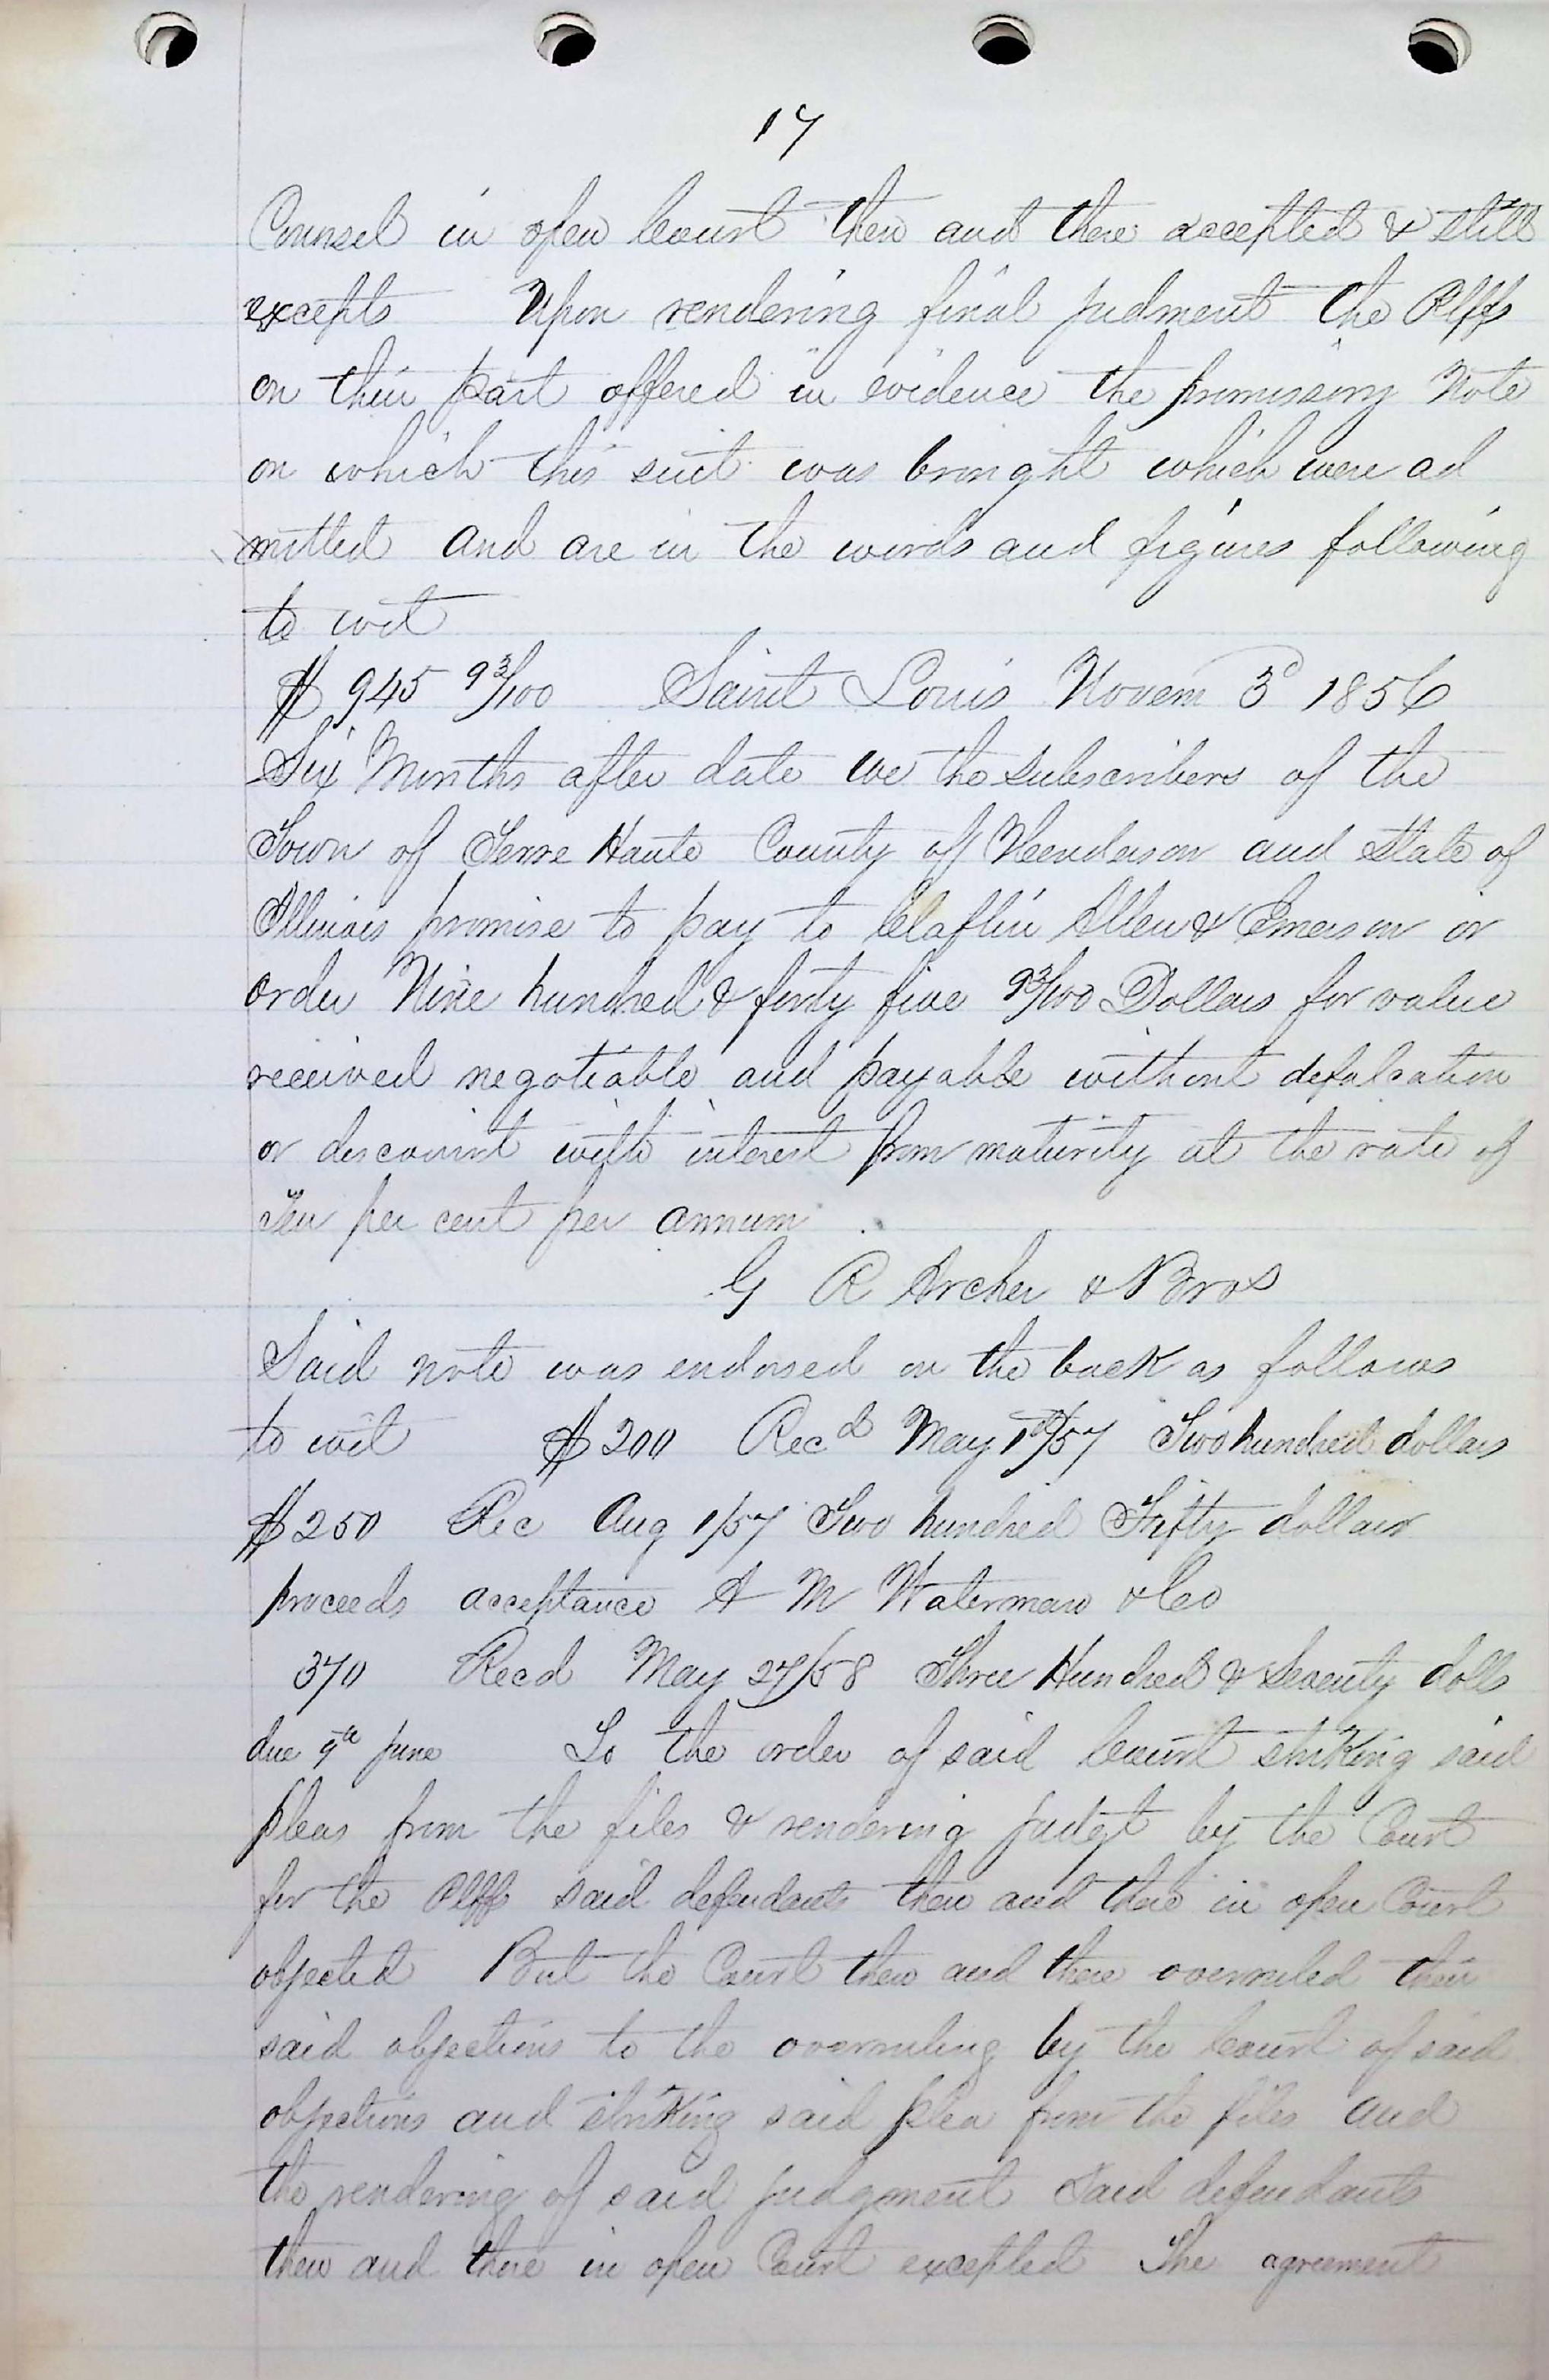 17
Counsel in open Court then and there accepted & still
excepts Upon rendering final judment the Plffs
on their part offered in evidence the promissory Note
on which this suit was brought which were ad
mitted and are in the words and figures following
to wit
$ 945 93/100 Saint Louis Novem 3d 1856
Six Months after date we the subscribers of the
Town of Terre Haute County of Henderson and State of
Illinois promise to pay to Claflin Allen & Emerson or
order Nine hundred & forty five 93/100 Dollars for value
received negotiable and payable without defalcation
or discount with interest from maturity at the rate of
Ten per cent per annum
G R Archer & Bros
Said note was endorsed on the back as follows
to wit $200 Recd May 1st/57 Two hundred dollars
$250 Rec Aug 1/57 Two hundred Fifty dollars
proceeds acceptance A M Waterman & Co
370 Recd May 27/58 Three Hundred & Seventy dolls
due June To the order of said Court striking said
pleas from the files & rendering judgt by the Court
for the Plffs said defendants then and there in open Court
objected But the Court then and there overruled their
said objections to the overruling by the Court of said
objections and striking said plea from the files and
the rendering of said judgment Said defendants
then and there in open Court excepted The agreement